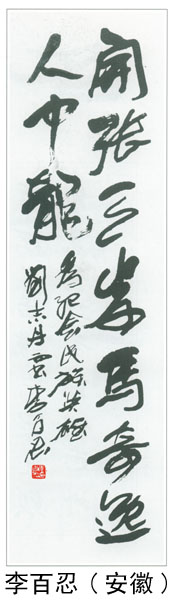 開張天岸馬奇逸
人中龍
為紀念民族英雄
劉志丹書李百忍
李百忍（安徽）